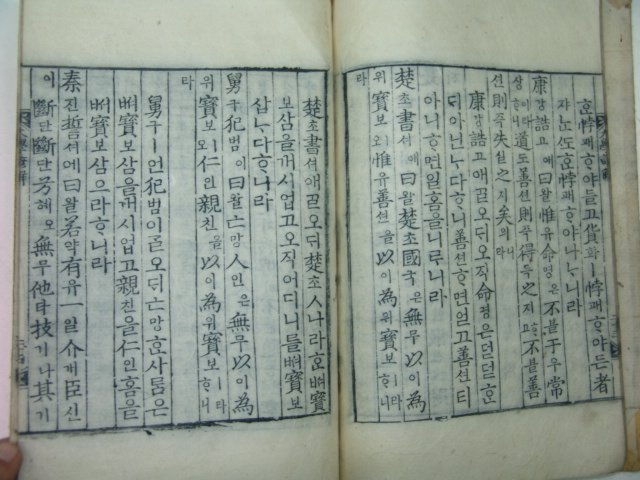 ᄒᆞᆫ悖패ᄒᆞ야들고貨화ㅣ悖패ᄒᆞ야든者
쟈ᄂᆞᆫᄯᅩᄒᆞᆫ悖패ᄒᆞ야나ᄂᆞ니라
康강誥고애曰왈惟유命명은不블于우常
샹이라ᄒᆞ니道도善션則즉得득之지ᄒᆞ고不블善
션則즉失실之지矣의라니
康강誥고애ᄀᆞᆯ오ᄃᆡ오직命명은덛덛ᄒᆞᆫ
ᄃᆡ아닌ᄂᆞ다ᄒᆞ니善션ᄒᆞ면얻고善션티
아니ᄒᆞ면일홈을니ᄅᆞ니라
楚초書셔애曰왈楚초國국은無무以이為
위寶보ㅣ오惟유善션을以이為위寶보ㅣ라ᄒᆞ니
라
楚초書셔애ᄀᆞᆯ오ᄃᆡ楚초人나라ᄒᆞᆫᄡᅥ寶
보삼을꺼시업고오직어디니ᄅᆞᆯᄡᅥ寶보
삼ᄂᆞ다ᄒᆞ니라
舅구犯범이曰왈亡망人인은無무以이為
위寶보ㅣ오仁인親친을以이為위寶보ㅣᄒᆞ니
라
舅구ㅣ언犯범이ᄀᆞᆯ오ᄃᆡ亡망ᄒᆞᆫ사ᄅᆞᆷ은
ᄡᅥ寶보삼을꺼시업고親친을仁인홈을
ᄡᅥ寶보삼으라ᄒᆞ니라
秦진誓셔애曰왈若약有유一일介개臣신
이斷단斷단兮혜오無무他타技기나其기